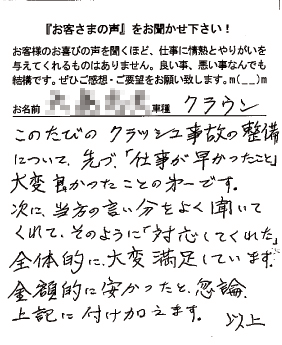 『お客さまの声』をお聞かせ下さい！
お客様のお喜びの声を聞くほど、仕事に情熱とやりがいを
与えてくれるものはありません。良い事、悪い事なんでも
結構です。ぜひご感想・ご要望をお願い致します。m(__)m
お名前 車種 クラウン
このたびの クラッシュ事故の整備
について、先づ、「仕事が早かったこと」
大変良かったことの第一です。
次に、当方の言い分をよく聞いて
くれて、そのように「対応してくれた」
全体的に、大変満足しています。
金額的に安かったと、忽論、
上記に付け加えます。 以上